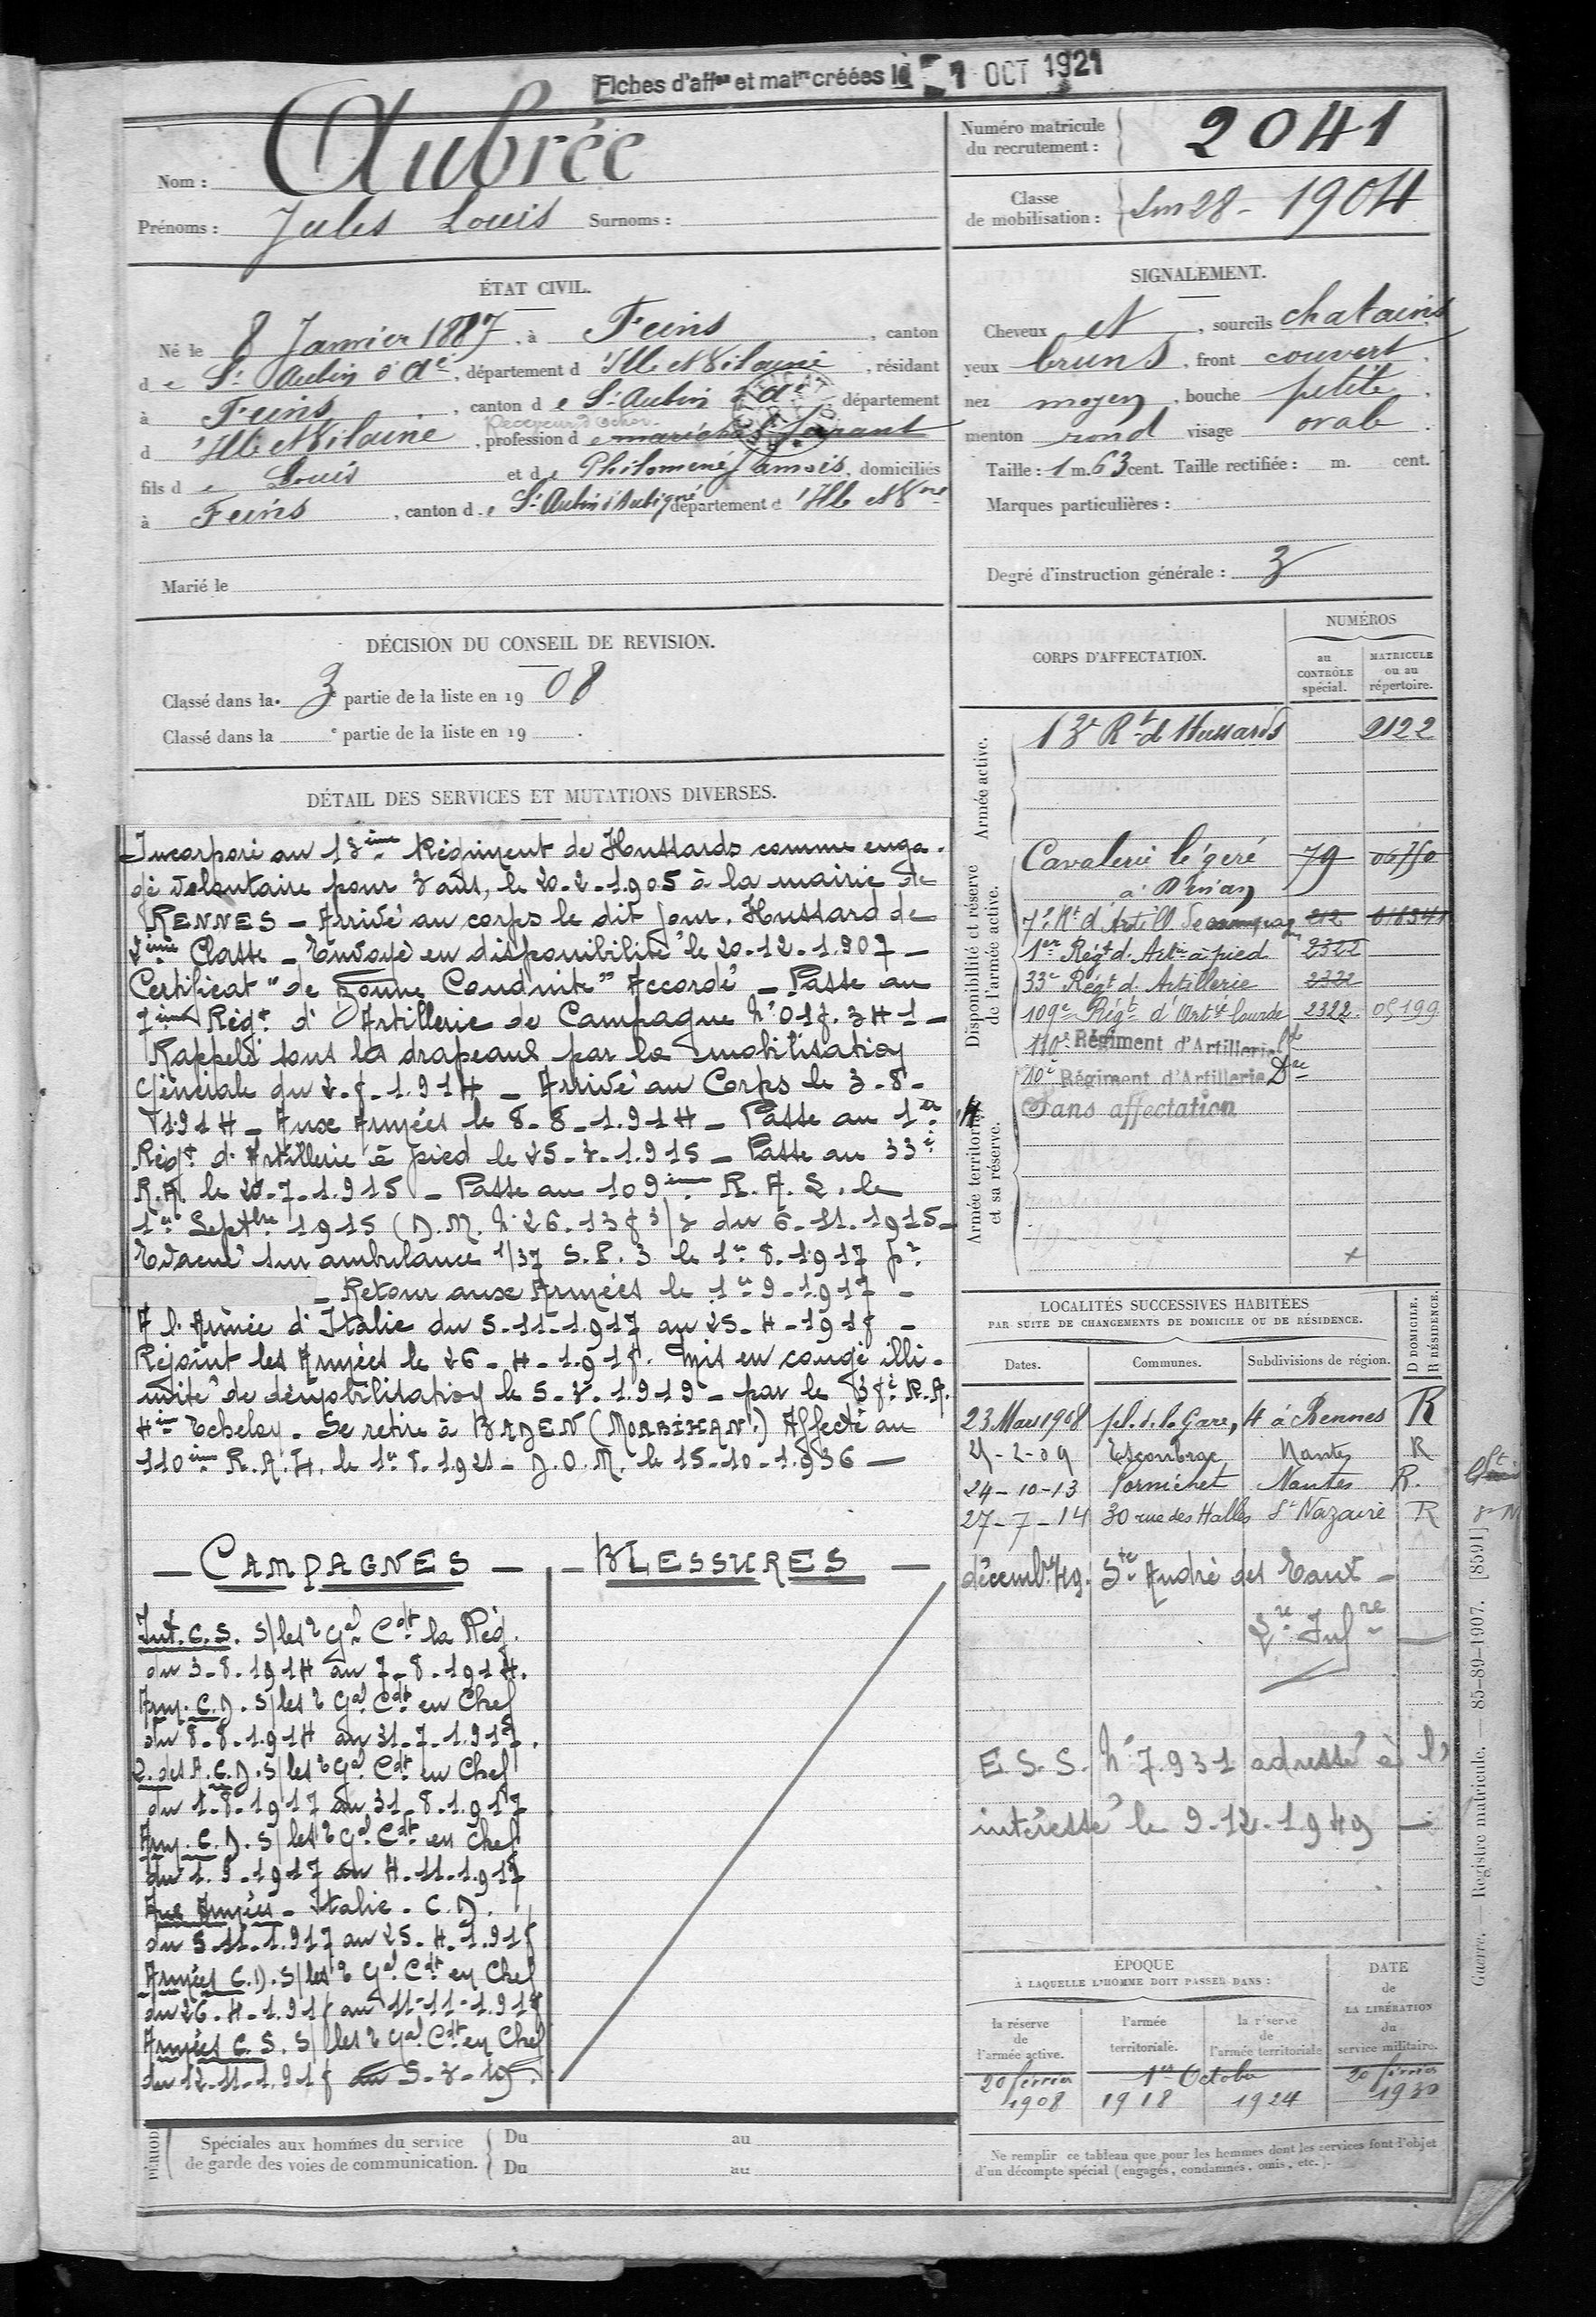 Fiches d'aff^on et mat^re créées le 1 OCT 1921
Nom : Aubrée
Prénoms : Jules Louis Surnoms :
Numéro matricule du recrutement : 2041
Classe de mobilisation : 1904
ÉTAT CIVIL.
Né le 8 Janvier 1887, à Feins, canton
de St Aubin d'Aé, département d'Ille et Vilaine, résidant
à Feins, canton de St Aubin d'Aé, département
d'Ille et Vilaine, profession de maréchal ferrant
fils de Louis et de Philomène Jamois, domiciliés
à Feins, canton de St Aubin d'Aubigné département d'Ille et Vne
Marié le
SIGNALEMENT.
Cheveux et, sourcils chatains
yeux bruns, front couvert
nez moyen, bouche petite
menton rond visage ovale
Taille : 1 m. 63 cent. Taille rectifiée : m. cent.
Marques particulières :
Degré d'instruction générale : 3
DÉCISION DU CONSEIL DE REVISION.
Classé dans la 3e partie de la liste en 1908
Classé dans la e partie de la liste en 19 .
DÉTAIL DES SERVICES ET MUTATIONS DIVERSES.
Incorporé au 13ème Régiment de Hussards comme enga-
gé volontaire pour 3 ans, le 20-2-1905 à la mairie de
RENNES - Arrivé au corps le dit jour. Hussard de
2ème Classe - Envoyé en disponibilité le 20-12-1907 -
Certificat "de Bonne Conduite" Accordé - Passe au
7ème Régt d'Artillerie de Campagne N° 018.341 -
Rappelé sous les drapeaux par la mobilisation
Générale du 2-8-1914 - Arrivé au Corps le 3-8-
1914 - Aux Armées le 8-8-1914 - Passe au 1er
Régt d'Artillerie à pied le 25-2-1915 - Passe au 33e
R.A. le 20-7-1915 - Passe au 109ème R.A.L. le
1er Septbre 1915 (D.M. N° 26.138 3/3 du 6-11-1915 -
Evacué sur ambulance 1/37 S.P. 3 le 1er 8-1917 pr
- Retour aux Armées le 1er 9-1917 -
A l'Armée d'Italie du 5-11-1917 au 25-4-1918 -
Rejoint les Armées le 26-4-1918. Mis en congé illi-
mité de démobilisation le 5-3-1919 - par le 38e R.A.
4ème Echelon. Se retire à BADEN (MORBIHAN.) Affecté au
110ème R.A.L. le 1er 8-1921 - D.O.M. le 15-10-1936 -
- CAMPAGNES - - BLESSURES -
Int. C.S. S/les 2 Gal Cdt la Rég.
du 3-8-1914 au 7-8-1914.
Arm. C.D. S/les 2 Gal Cdt en Chef
du 8-8-1914 au 31-7-1917.
Z. des A.C.D. S/les 2 Gal Cdt en Chef
du 1-8-1917 au 31-8-1917
Arm. C.D. S/les 2 Gal Cdt en Chef
du 1-9-1917 au 4-11-1917
Aux Armées - Italie - C.D.
du 5-11-1917 au 25-4-1918
Armées C.D. S/les 2 Gal Cdt en Chef
du 26-4-1918 au 11-11-1918
Armées C.S. S/les 2 Gal Cdt en Chef
du 12-11-1918 au 5-3-19
PÉRIOD
Spéciales aux hommes du service
de garde des voies de communication.
Du au
Du au
CORPS D'AFFECTATION.
NUMÉROS
au CONTRÔLE spécial.
MATRICULE ou au répertoire.
Armée active.
13e Rt de Hussards 2122
Disponibilité et réserve de l'armée active.
Cavalerie légère 79
à Dinan
7e Rt d'Artill de campagne 212 018341
1er Régt d'Artie à pied 2322
33e Régt d'Artillerie 2322
109e Régt d'Artie lourde 2322 05199
110e Régiment d'Artillerie Lde
10e Régiment d'Artillerie Dre
Sans affectation
Armée territoriale et sa réserve.
LOCALITÉS SUCCESSIVES HABITÉES
PAR SUITE DE CHANGEMENTS DE DOMICILE OU DE RÉSIDENCE.
Dates. Communes. Subdivisions de région. D DOMICILE. R RÉSIDENCE.
23 Mars 1908 pl. de la Gare, 4 à Rennes R
21-2-09 Escoublac Nantes R
24-10-13 Pornichet Nantes R.
27-7-14 30 rue des Halles St Nazaire R
décemb. 49. Ste André des Eaux -
Lre Infre
E.S.S. N° 7.931 adressé à l'
intéressé le 9-12-1949 -
ÉPOQUE
À LAQUELLE L'HOMME DOIT PASSER DANS :
la réserve de l'armée active.
l'armée territoriale.
la réserve de l'armée territoriale
DATE de LA LIBÉRATION du service militaire.
20 février 1908 1er Octobre 1918 1924 20 février 1930
Ne remplir ce tableau que pour les hommes dont les services font l'objet
d'un décompte spécial (engagés, condamnés, omis, etc.).
Guerre. — Registre matricule. — 85-89-1907. [8591]